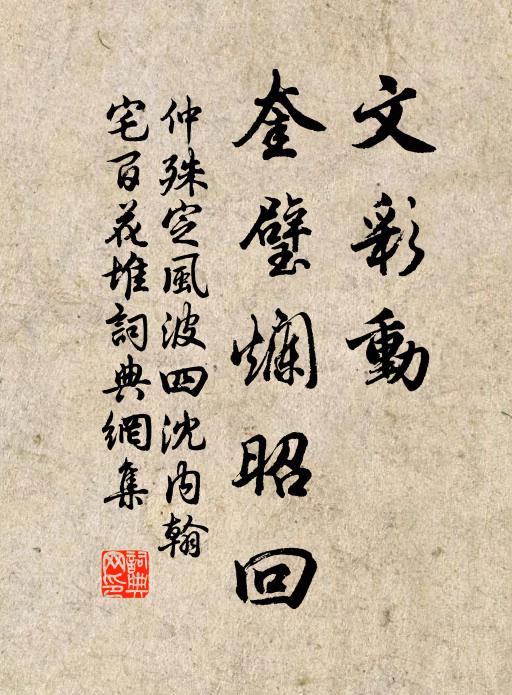 文彩動
奎璧爛昭回
仲殊定風波四沈内翰
宅百花堆詞典網集
詞典
网印